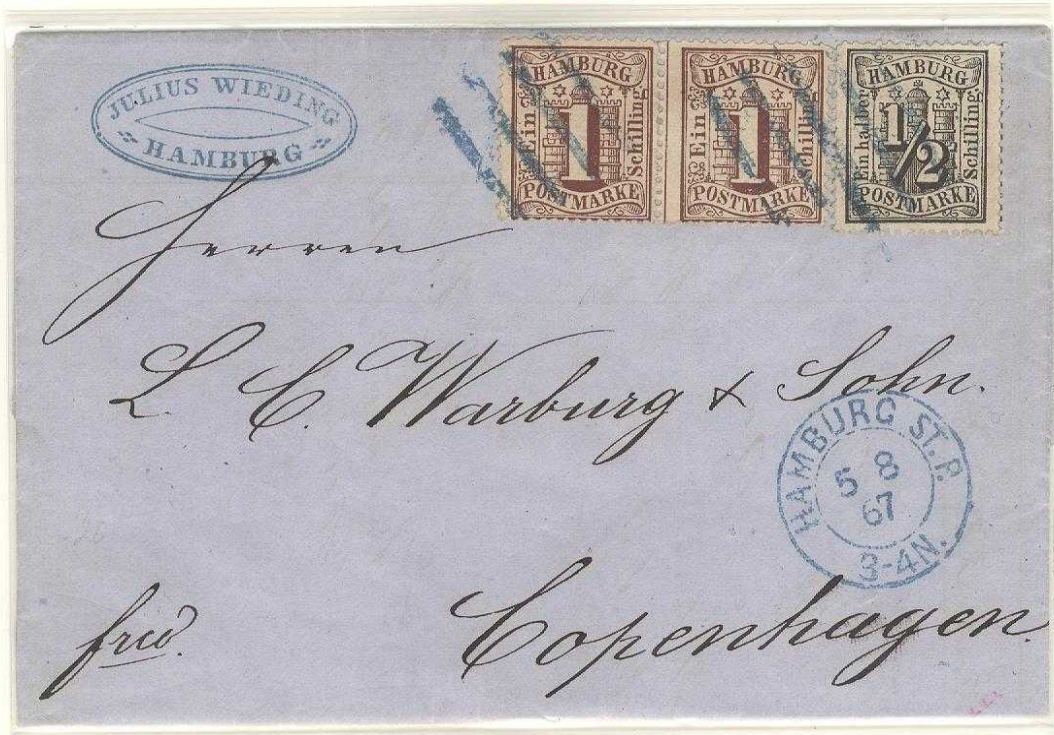 JULIUS WIEDING
HAMBURG
HAMBURG
Ein
1
Schilling
POSTMARKE
HAMBURG
Ein
1
Schilling
POSTMARKE
HAMBURG
Ein halber
1/2
Schilling.
POSTMARKE
Herren
L. E. Warburg & Sohn.
HAMBURG ST. P.
5 8
67
3-4N.
Copenhagen.